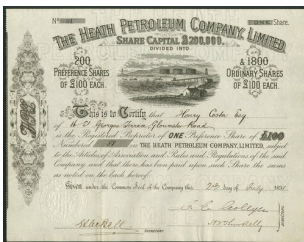 Nº
ONE Share.
THE HEATH PETROLEUM COMPANY, LIMITED.
SHARE CAPITAL £200,000,
DIVIDED INTO
200
PREFERENCE SHARES
OF £100 EACH.
& 1800
ORDINARY SHARES
OF £100 EACH.
This is to Certify that Henry Coster Esq
of St Georges Terrace Gloucester Road
is the Registered Proprietor of ONE Preference Share of £100
Numbered IN THE HEATH PETROLEUM COMPANY, LIMITED, subject
to the Articles of Association and Rules and Regulations of the said
Company and that there has been paid upon such Share the sums
as noted on the back hereof.
GIVEN under the Common Seal of the Company this 2nd day of July